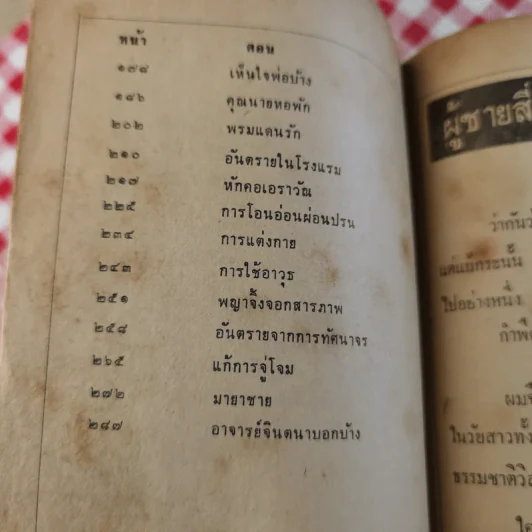 หน้า ตอน
๑๗๘ เห็นใจพ่อบ้าง
๑๘๖ คุณนายหอพัก
๒๐๒ พรมแดนรัก
๒๑๐ อันตรายในโรงแรม
๒๑๗ หักคอเอราวัณ
๒๒๕ การโอนอ่อนผ่อนปรน
๒๓๔ การแต่งกาย
๒๔๓ การใช้อาวุธ
๒๕๑ พญาจิ้งจอกสารภาพ
๒๕๘ อันตรายจากการทัศนาจร
๒๖๕ แก้การจู่โจม
๒๗๒ มายาชาย
๒๘๗ อาจารย์จินตนาบอกบ้าง
ผู้ชายสี่
ว่ากันว
แต่แม้กระนั้น
ไปอย่างหนึ่ง
ในวัยสาวทั้ง